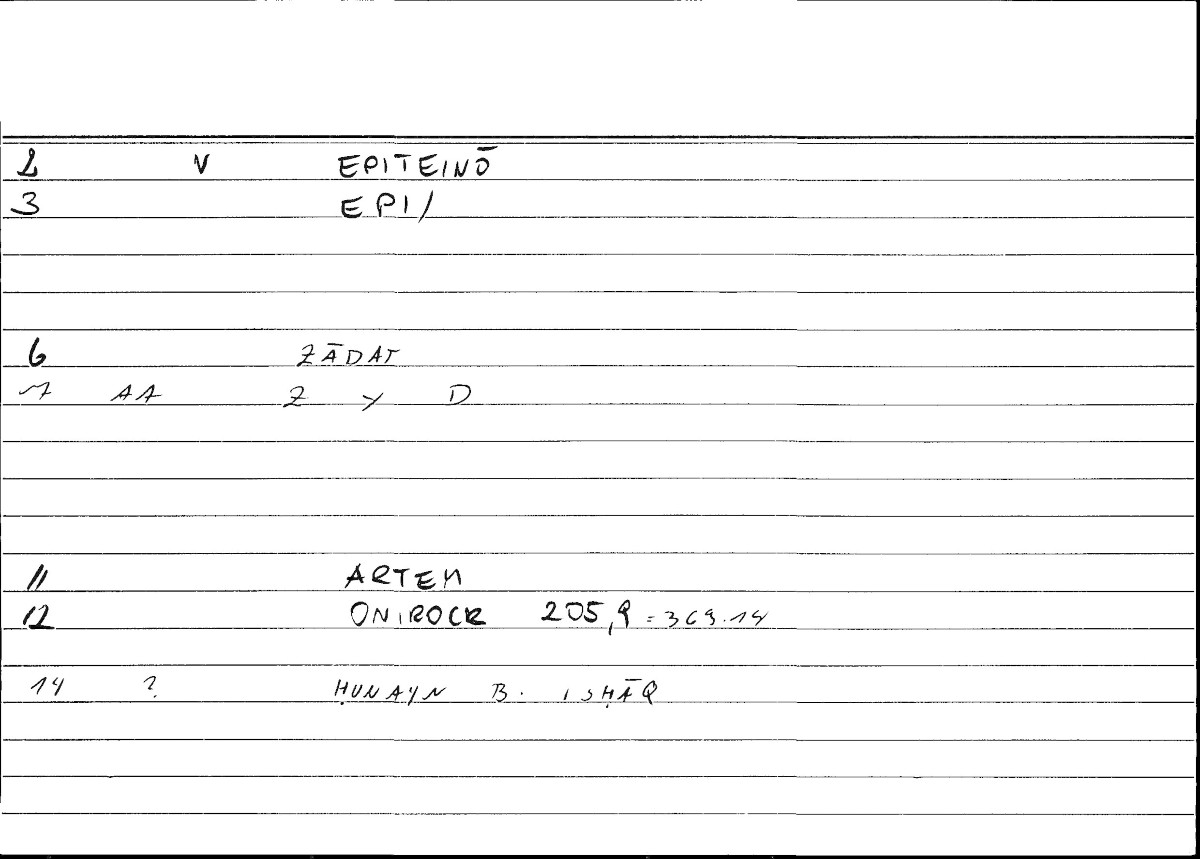 2 V EPITEINŌ
3 EPI/
6 ZĀDAT
7 AA Z Y D
11 ARTEM
12 ONIROCR 205,9 = 369.14
14 ? ḤUNAYN B. ISḤĀQ